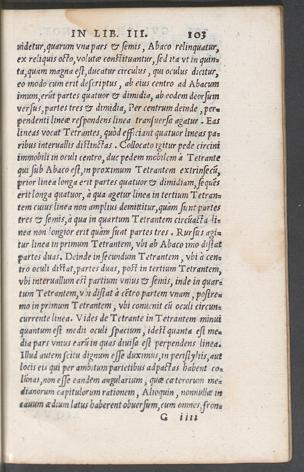 IN LIB. III. 103
uidetur, quarum vna pars & semis, Abaco relinquatur,
ex reliquis octo, volutæ constituantur, sed ita vt in quin-
ta, quam magna est, ducatur circulus, qui oculus dicitur,
eo modo cum erit descriptus, ab eius centro ad Abacum
imum, erũt partes quatuor & dimidia, ab eodem deorsum
versus, partes tres & dimidia, Per centrum deinde, per-
pendenti lineæ respondens linea transuersa agatur. Eas
lineas vocat Tetrantes, quòd efficiant quatuor lineas pa-
ribus interuallis distinctas. Collocato igitur pede circini
immobili in oculi centro, duc pedem mobilem à Tetrante
qui sub Abaco est, in proximum Tetrantem extrinsecũ,
prior linea longa erit partes quatuor & dimidiam, sequẽs
erit longa quatuor, à qua agetur linea in tertium Tetran-
tem cuius linea non amplius demittitur, quàm sunt partes
tres & semis, à qua in quartum Tetrantem circũacta li-
nea non longior erit quàm suat partes tres. Rursus agi-
tur linea in primum Tetrantem, vbi ab Abaco imo distat
partes duas. Deinde in secundum Tetrantem, vbi à cen-
tro oculi distat, partes duas, post in tertium Tetrantem,
vbi interuallum est partium vnius & semis, inde in quar-
tum Tetrantem, vbi distat à cẽtro partem vnam, postre-
mo in primum Tetrantem, vbi conuenit cũ oculi circun-
currente linea. Vides de Tetrante in Tetrantem minui
quantum est medii oculi spacium, idest quanta est me-
dia pars vnius earũ in quas diuisa est perpendens linea.
Illud autem scitu dignum esse duximus, in peristyliis, aut
locis eis qui per ambitum parietibus adpactas habent co
lũnas, non esse eandem angularium, quæ cæterorum me-
dianorum capitulorum rationem, Alioquin, nonnullæ in
cauum ædium latus haberent obuersum, cum omnes, fron-
G iiii